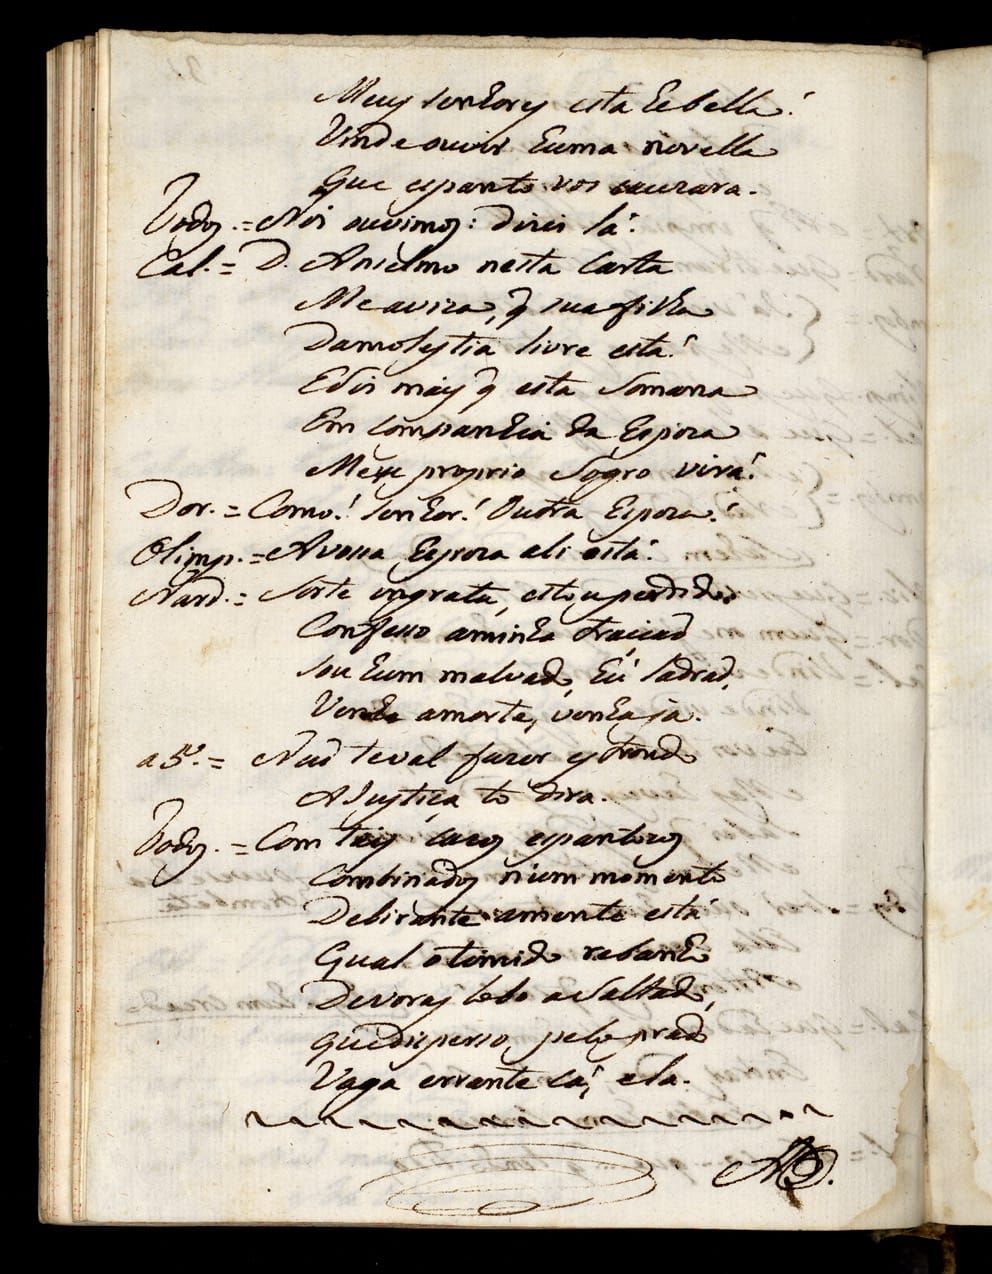 Meuy senhorey esta he bella!
Vinde ouvir huma novella
Que espanto vos cauzara.
Todoz. = Nós ouvimoz: dizei lá.
Cal. = D. Anselmo nesta Carta
Me aviza, q̃ sua filha
Da molestia livre está!
E dis mais q̃ esta Somana
Em companhia da Espoza
Meu proprio Sogro virá!
Dor. = Como! senhor! Outra Espoza!
Olimp. = A vossa Espoza ali está!
Nard. = Sorte ingrata, estou perdido,
Confesso a minha traiçaõ
Sou hum malvado, hú ladraõ,
Venha a morte, venha já.
a 5. = Naõ te val furor estrondo
A Justiça to dira.
Todoz. = Com taiz cazoz espantozoz
Combinadoz n'um momento
Delirante a mente está
Qual o timido rebanho
De voraz lobo asaltado,
que disperso, pelo prado
Vaga errante cá, e la.